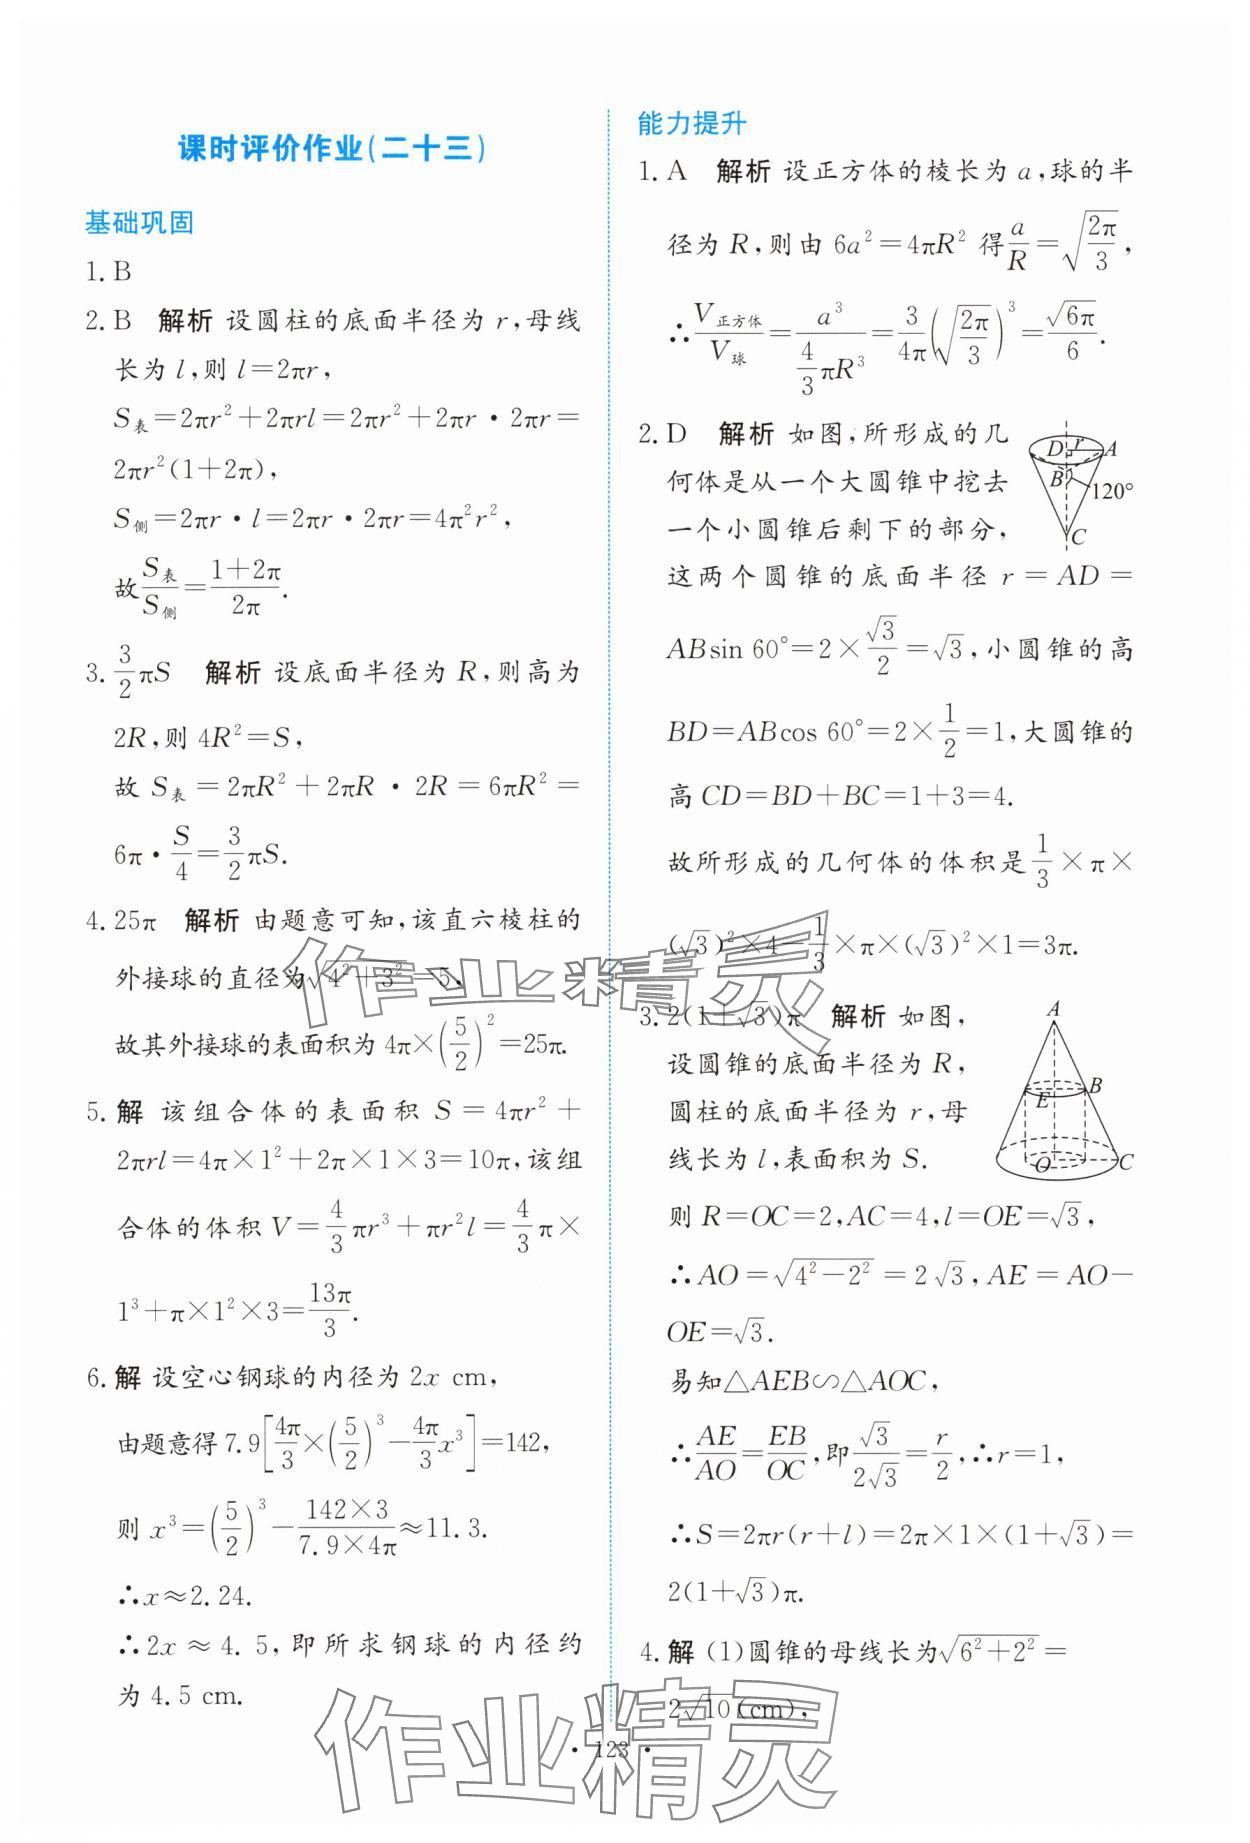 课时评价作业(二十三)
基础巩固
1. B
2. B 解析 设圆柱的底面半径为 r,母线
长为 l,则 l=2πr,
S表=2πr²+2πrl=2πr²+2πr·2πr=
2πr²(1+2π),
S侧=2πr·l=2πr·2πr=4π²r²,
故S表/S侧=(1+2π)/2π.
3. 3/2πS 解析 设底面半径为 R,则高为
2R,则 4R²=S,
故 S表=2πR²+2πR·2R=6πR²=
6π·S/4=3/2πS.
4. 25π 解析 由题意可知,该直六棱柱的
外接球的直径为√(4²+3²)=5,
故其外接球的表面积为 4π×(5/2)²=25π.
5. 解 该组合体的表面积 S=4πr²+
2πrl=4π×1²+2π×1×3=10π,该组
合体的体积 V=4/3πr³+πr²l=4/3π×
1³+π×1²×3=13π/3.
6. 解 设空心钢球的内径为 2x cm,
由题意得 7.9[4π/3×(5/2)³-4π/3x³]=142,
则 x³=(5/2)³-(142×3)/(7.9×4π)≈11.3.
∴x≈2.24.
∴2x≈4.5,即所求钢球的内径约
为 4.5 cm.
能力提升
1. A 解析 设正方体的棱长为 a,球的半
径为 R,则由 6a²=4πR² 得a/R=√(2π/3),
∴V正方体/V球=a³/(4/3πR³)=3/4π(√(2π/3))³=√(6π)/6.
2. D 解析 如图,所形成的几
何体是从一个大圆锥中挖去
一个小圆锥后剩下的部分,
D r A
B 120°
C
这两个圆锥的底面半径 r=AD=
ABsin 60°=2×√3/2=√3,小圆锥的高
BD=ABcos 60°=2×1/2=1,大圆锥的
高 CD=BD+BC=1+3=4.
故所形成的几何体的体积是1/3×π×
(√3)²×4-1/3×π×(√3)²×1=3π.
3. 2(1+√3)π 解析 如图,
设圆锥的底面半径为 R,
圆柱的底面半径为 r,母
线长为 l,表面积为 S.
A
E B
O C
则 R=OC=2,AC=4,l=OE=√3,
∴AO=√(4²-2²)=2√3,AE=AO-
OE=√3.
易知△AEB∽△AOC,
∴AE/AO=EB/OC,即√3/2√3=r/2,∴r=1,
∴S=2πr(r+l)=2π×1×(1+√3)=
2(1+√3)π.
4. 解 (1)圆锥的母线长为√(6²+2²)=
2√10(cm),
·123·
作业精灵
作业精灵